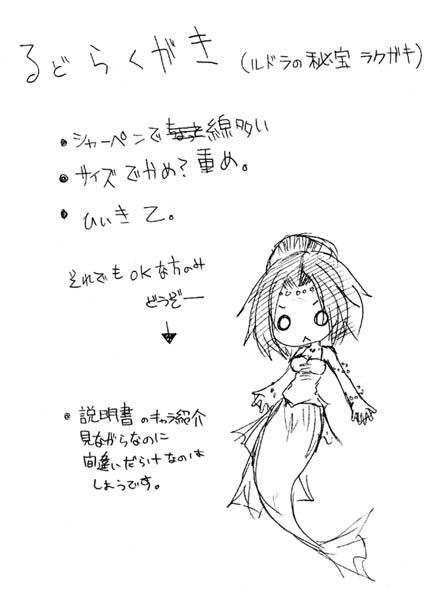 るどらくがき (ルドラの秘宝 ラクガキ)
・シャーペンで 線多い
・サイズでかめ？重め。
・ひいき て。
それでもOKな方のみ
どうぞー
・説明書のキャラ紹介
見ながらなのに
間違いだらけなのは
しようです。